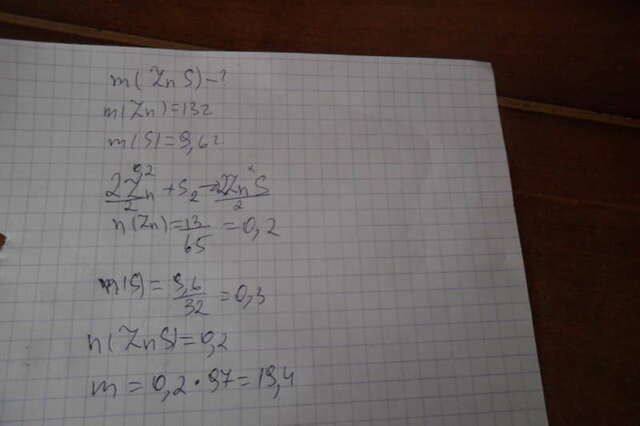 m(ZnS)-?
m(Zn)=13г
m(S)=9,6г
0,2 2
2Zn + S2 → 2ZnS
2 2
n(Zn)=13/65=0,2
n(S)=9,6/32=0,3
n(ZnS)=0,2
m=0,2·97=19,4